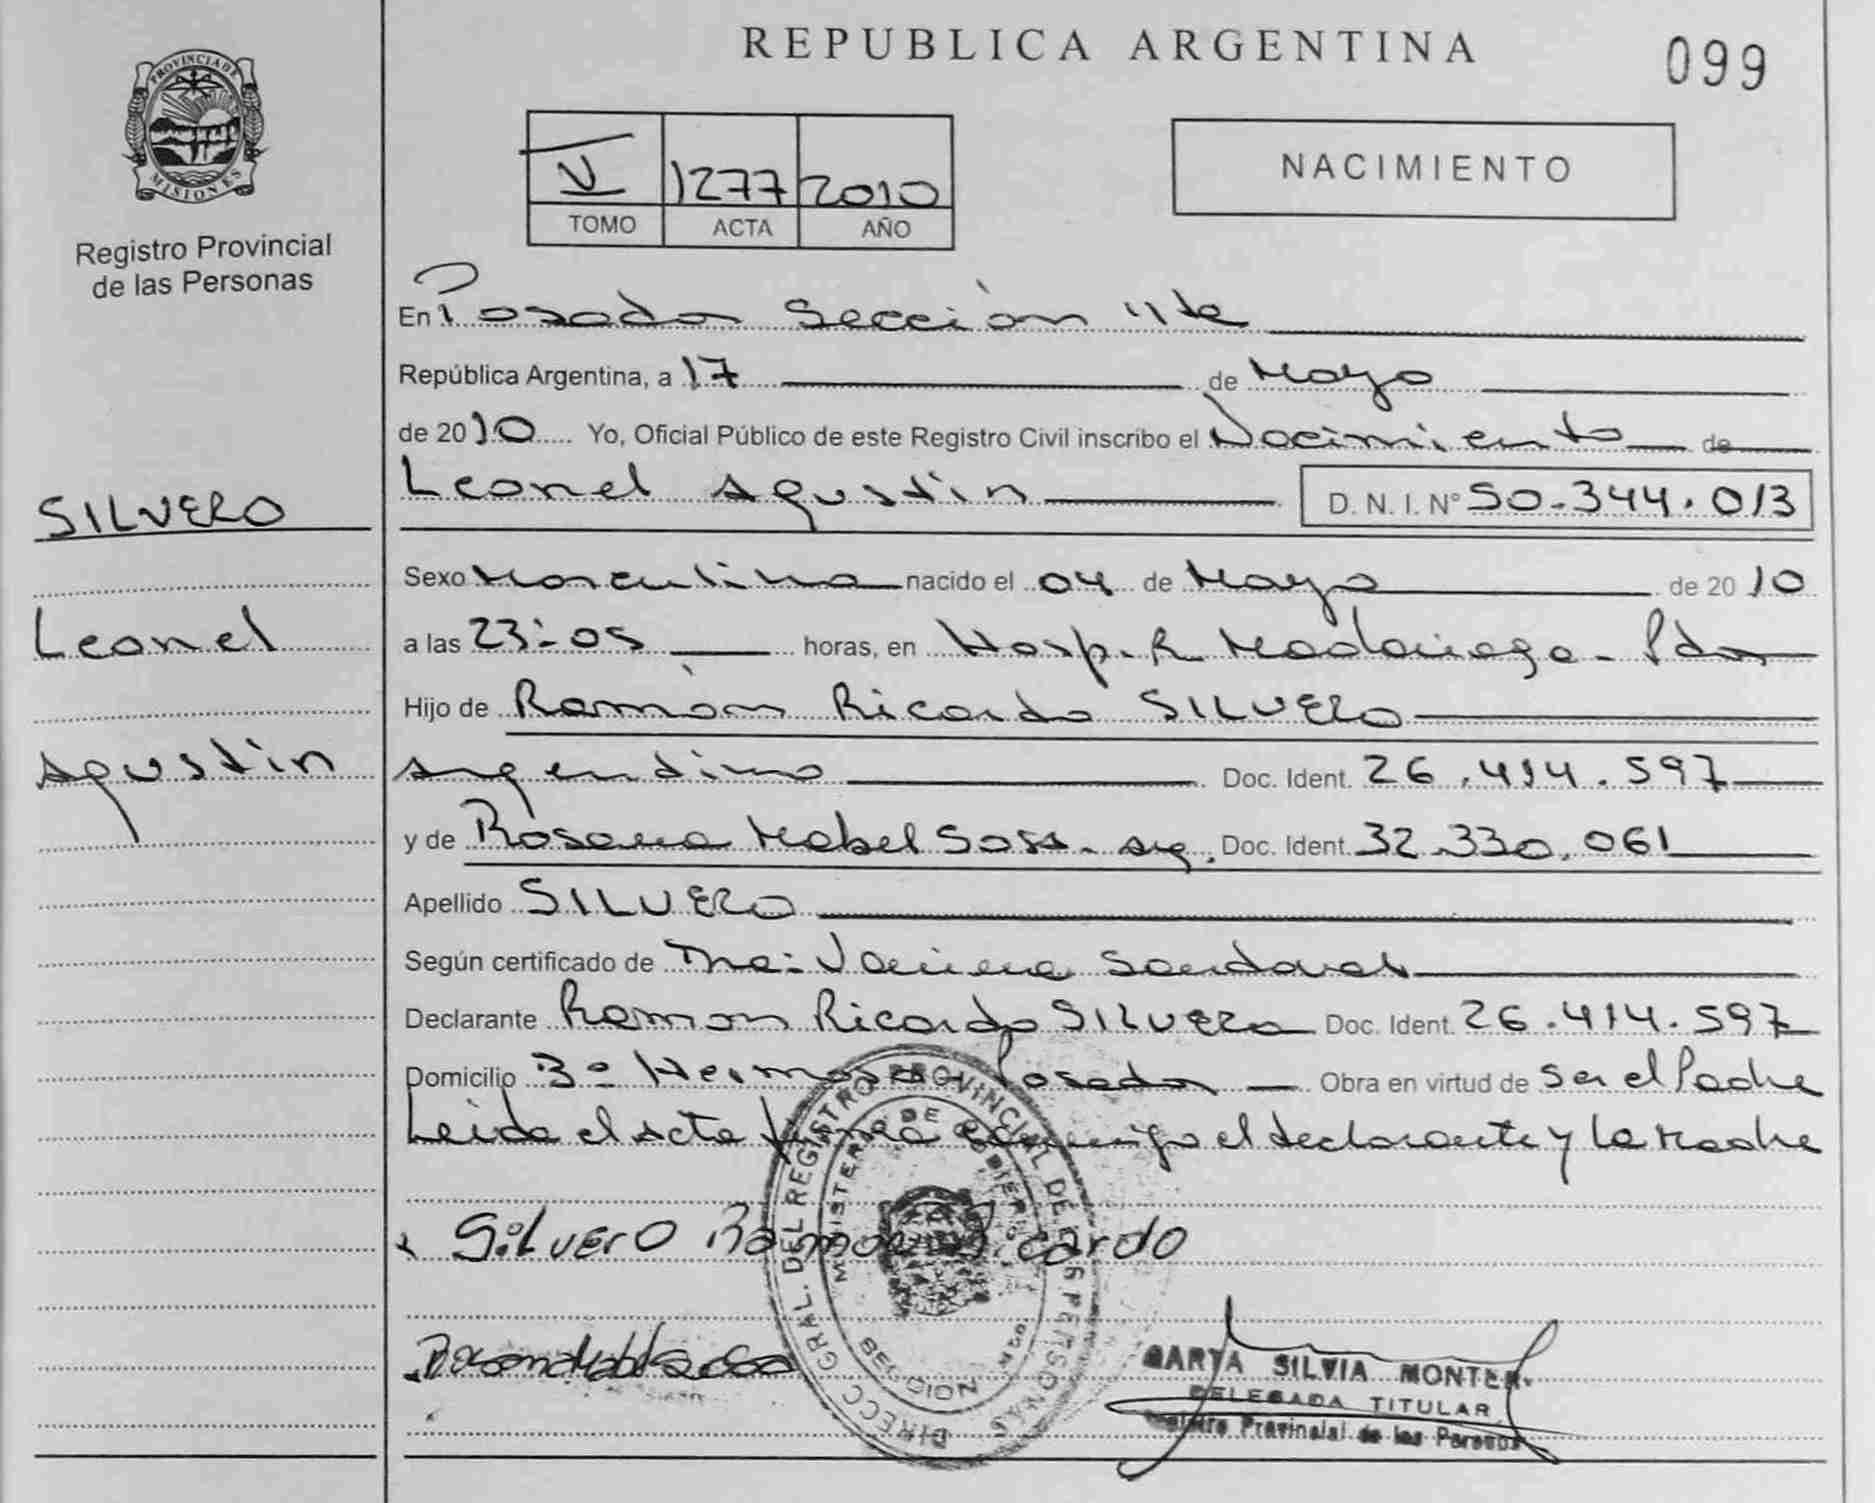 PROVINCIA DE
MISIONES
Registro Provincial
de las Personas
SILVERO
Leonel
Agustin
REPUBLICA ARGENTINA
099
V 1277 2010
TOMO ACTA AÑO
NACIMIENTO
En Posadas Sección 11ª
República Argentina, a 17 de Mayo
de 2010 Yo, Oficial Público de este Registro Civil inscribo el Nacimiento de
Leonel Agustin D. N. I. Nº 50.344.013
Sexo Masculino nacido el 04 de Mayo de 2010
a las 23:05 horas, en Hosp. R. Madariaga - Pdas
Hijo de Ramón Ricardo SILVERO
Argentino Doc. Ident. 26.414.597
y de Rosana Mabel Sosa - arg. Doc. Ident. 32.330.061
Apellido SILVERO
Según certificado de Sandoval
Declarante Ramon Ricardo SILVERO Doc. Ident. 26.414.597
Domicilio Bº Hermosa - Posadas Obra en virtud de ser el Padre
Leida el Acta firma conmigo el declarante y la Madre
Silvero Ramon Ricardo
DIRECC. GRAL. DEL REGISTRO PROVINCIAL DE LAS PERSONAS
MINISTERIO DE GOBIERNO
MARTA SILVIA MONTER
DELEGADA TITULAR
Registro Provincial de las Personas